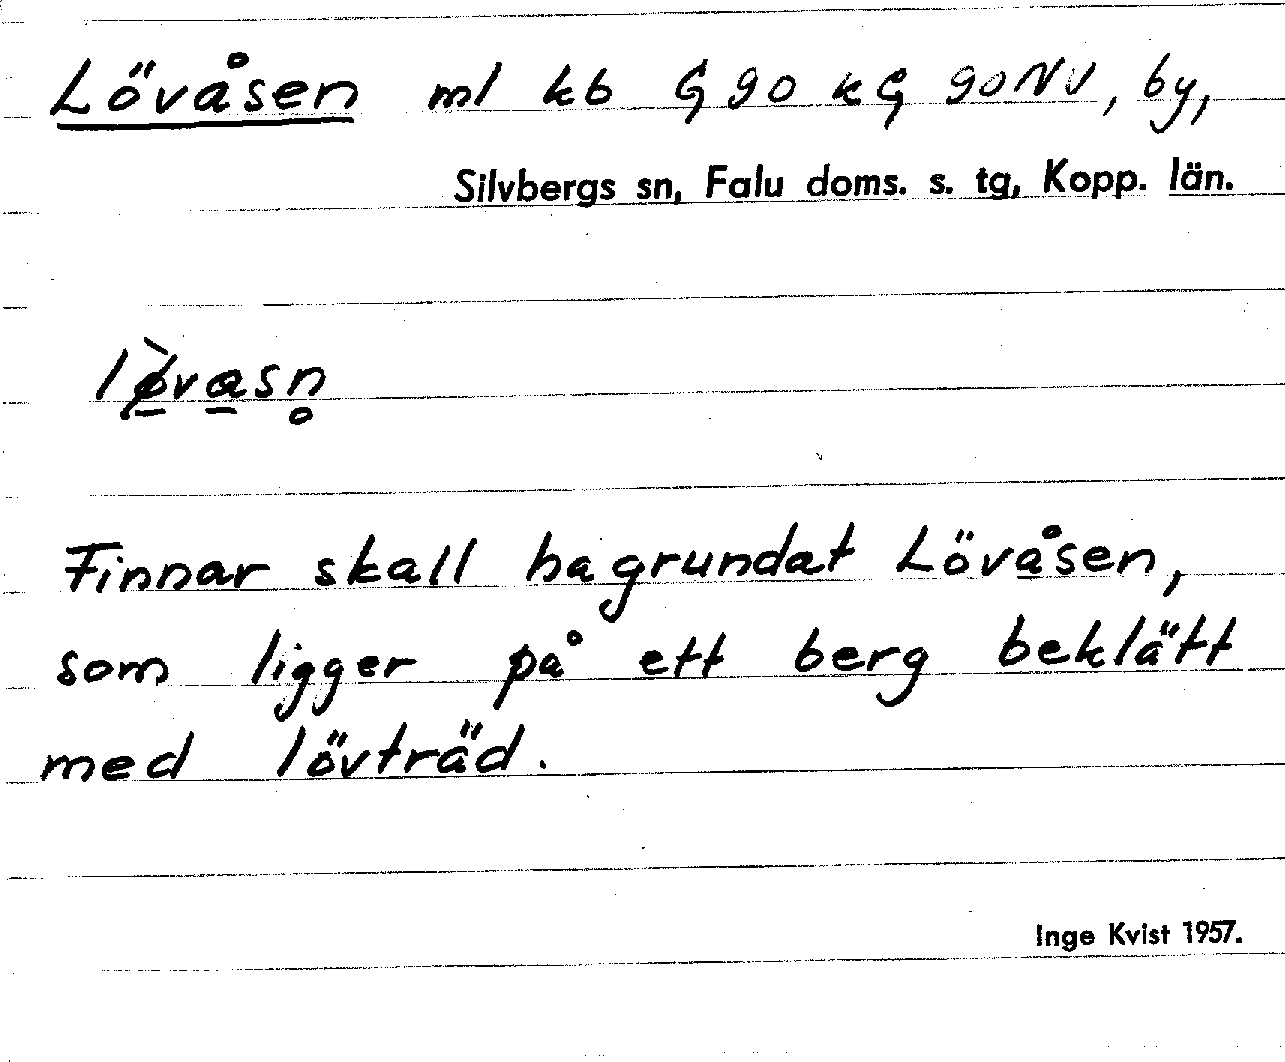 Lövåsen ml kb G 90 kG 90NV, by,
Silvbergs sn, Falu doms. s. tg, Kopp. län.
lø̠̀va̠sn̥
Finnar skall ha grundat Lövåsen,
som ligger på ett berg beklätt
med lövträd.
Inge Kvist 1957.